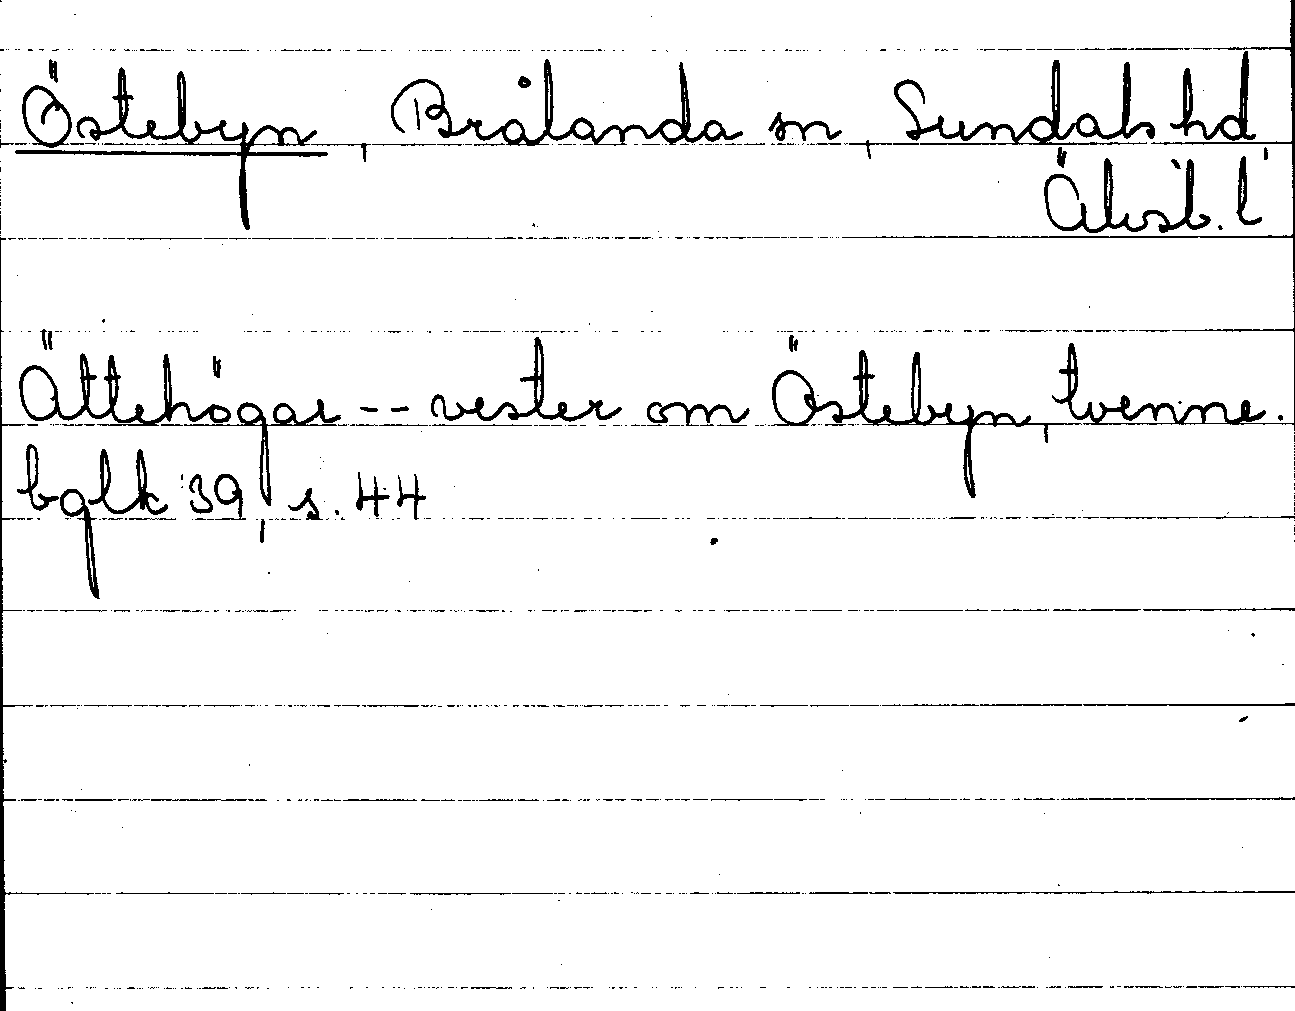 Östebyn, Brålanda sn, Sundals hd,
Älvsb. l
Ättehögar -- vester om Östebyn, tvenne.
bglk 39, s. 44